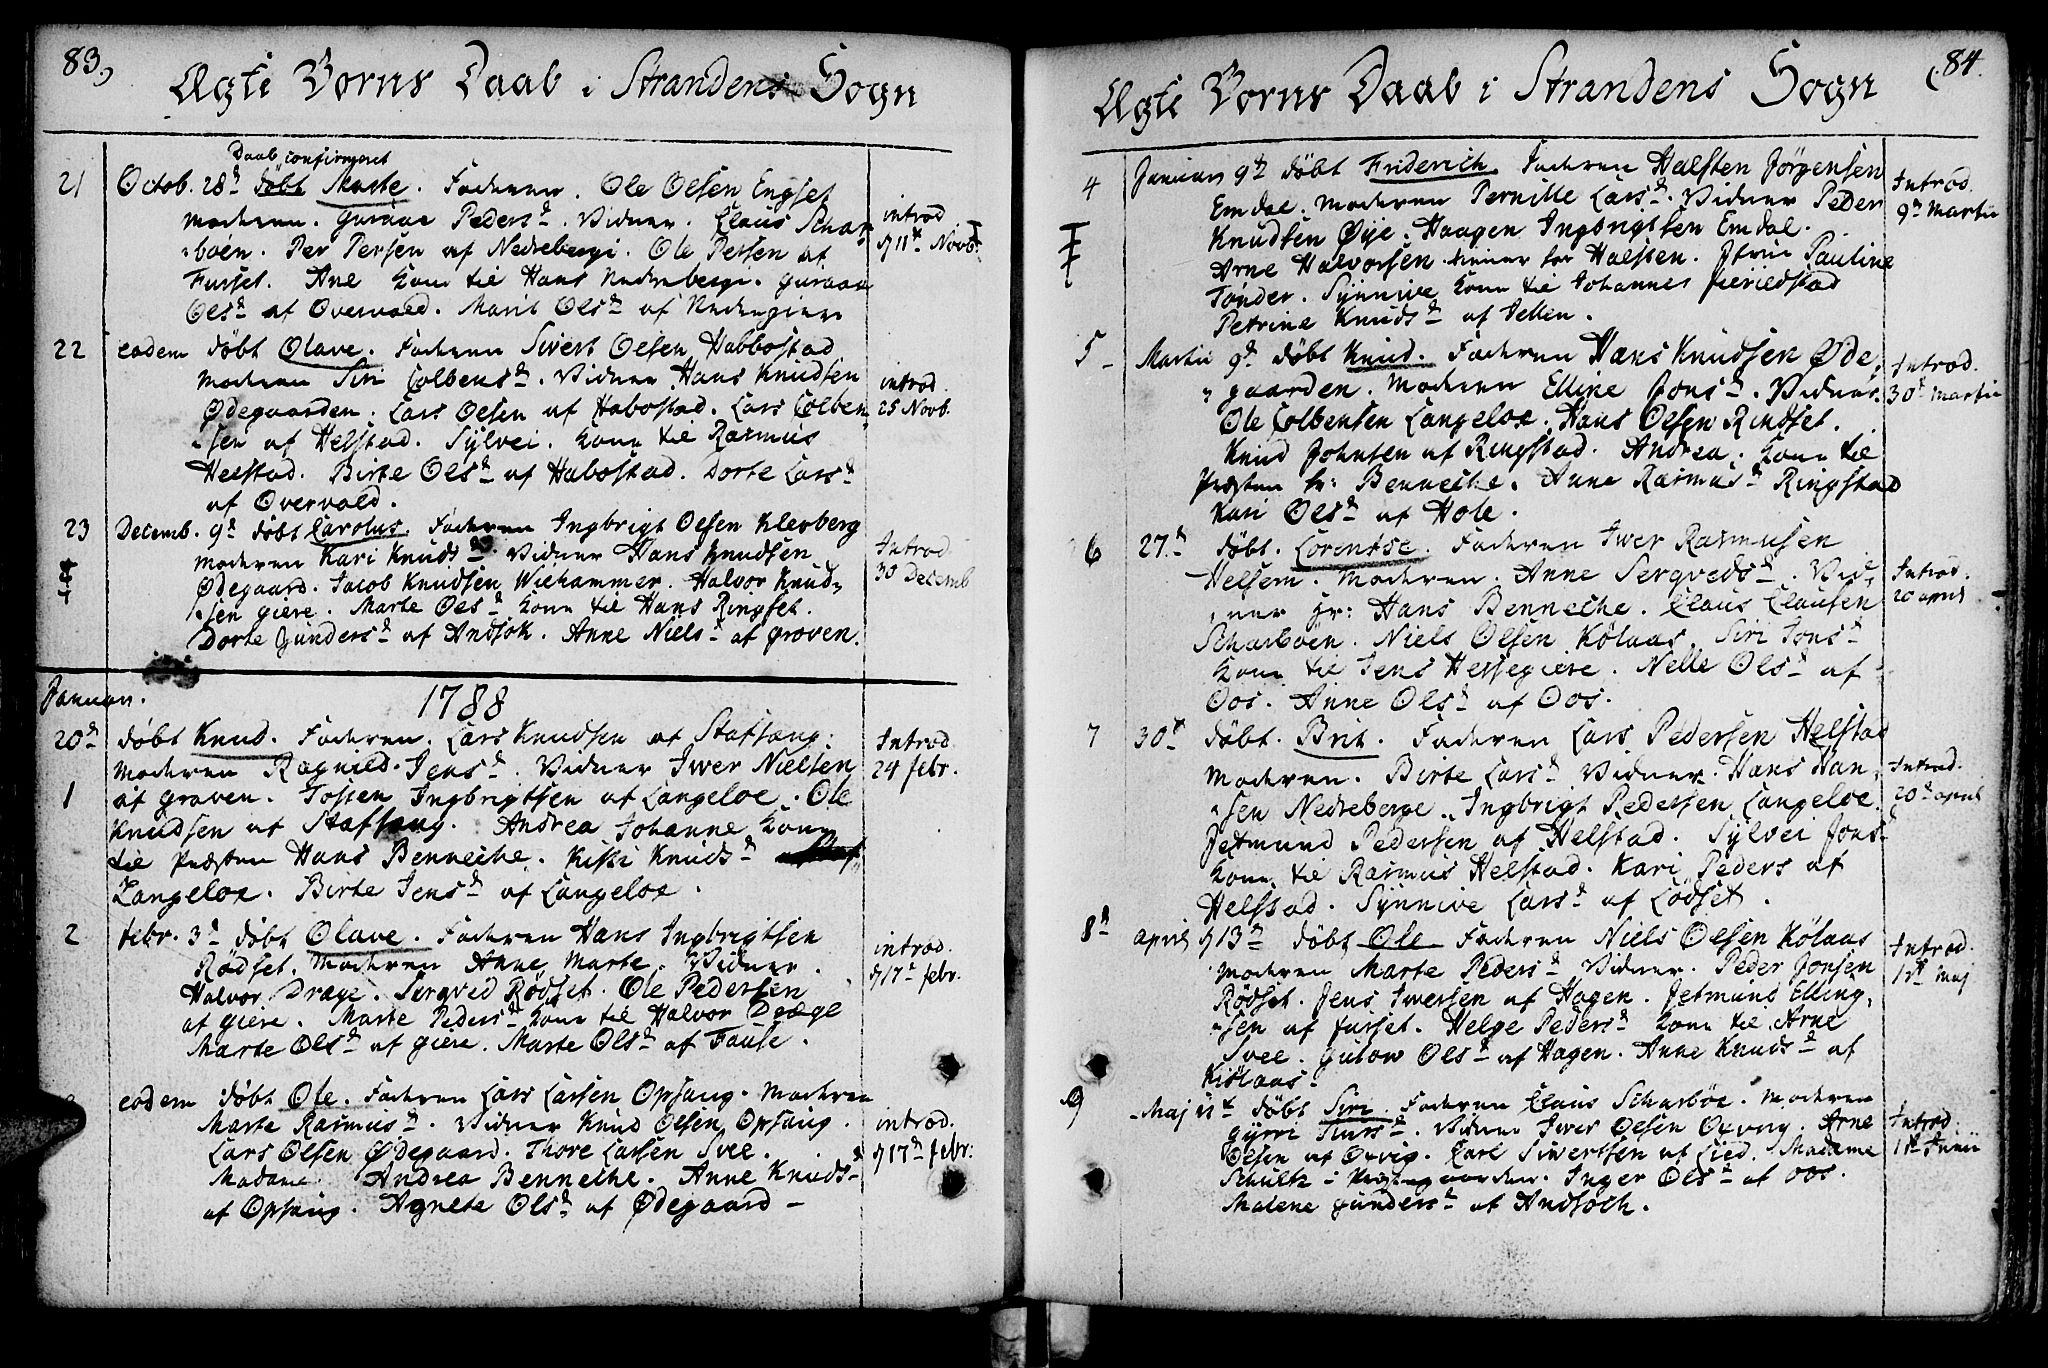 83,
Ægte Børns Daab i Strandens Sogn
Daab confirmeret
21 Octob. 28d döbt Marte. Faderen. Ole Olsen Engset
moderen. Guraae Pedersd. Vidner. Claus Schar-
boen. Per Persen af Nedrebergi. Ole Persen af
Furset. Ane kone til Hans Nedrebergi. Guraae
Olsd af Overvold. Marit Olsd af Nedregiere
introd
d 11t Novb.
22 eodem döbt Olave. Faderen Sivert Olsen Habbostad
moderen Siri Colbensd. Vidner Hans Knudsen
Ødegaarden. Lars Olsen af Habostad. Lars Colben
sen af Helstad. Sylvei. kone til Rasmus
Helstad. Birte Olsd af Habostad. Dorte Larsd
af Overvold.
introd.
25 Novb.
23 Decemb. 9d döbt Carolus. Faderen Ingbrigt Olsen Klevberg
moderen Kari Knudsd. Vidner Hans Knudsen
Ødegaard. Jacob Knudsen Wiehammer. Halvor Knud-
sen giere. Marte Olsd kone til Hans Ringset.
Dorte Gundersd af Andsok. Anne Nielsd af groven.
Introd
30 Decemb
Januari.
1788
20d döbt Knud. Faderen. Lars Knudsen af Stafsang.
moderen Ragnild. Jensd. Vidner Iwer Nielsen
1 af graven. Tosten Ingbrigtsen af Langeloe. Ole
Knudsen af Stafsang. Andrea Johanne kone
til Præsten Hans Benneche. Kisti Knudsd
Langeloe. Birte Jensd af Langeloe.
Introd
24 febr.
2 febr. 3d döbt Olave. Faderen Hans Ingbrigtsen
Rödset. Moderen Anne Marte. Vidner.
Halvor Drage. Sergved Rödset. Ole Pedersen
af giere. Marte Pedersd kone til Halvor Drage
Marte Olsd af giere. Marte Olsd af Fause.
introd.
d 17d febr.
eodem döbt Ole. Faderen Lars Larsen Opsang. Moderen
Marte Rasmusd. Vidner Knud Olsen Opsang.
Lars Olsen Ødegaard. Thore Larsen Svee.
Madame Andrea Benneche. Anne Knudsd
af Opsang. Agnete Olsd af Ødegaard -
introd.
d 17d febr.
84.
Ægte Børns Daab i Strandens Sogn
4 Januari 9d döbt Friderich. Faderen Halsten Jörgensen
Emdal. moderen Pernille Larsd. Vidner Peder
Knudsen Øye. Haagen Ingbrigtsen Emdal.
Arne Halvorsen tiener hos Halsten. Jfrue Pauline
Tönder. Synnive kone til Johannes
Petrine Knudsd af Vellen.
Introd.
9d Martii
5 Martii 9d döbt Knud. Faderen Hans Knudsen Øde-
gaarden. moderen Elline Jonsd. Vidner.
Ole Colbensen Langeloe. Hans Olsen Rindset.
Knud Johnsen af Ringstad. Andrea. kone til
Præsten hr: Benneche. Anne Rasmusd Ringstad
Kari Olsd af Hole.
Introd.
30t Martii
6 27.d döbt. Lorentse. Faderen Iwer Rasmusen
Helsem. moderen. Anne Sergvedsd. Vid-
ner Hr: Hans Benneche. Claus Clausen
Scharboen. Niels Olsen Kölaas. Siri Jonsd
kone til Jens Hessegiere. Nelle Olsd af
Oos. Anne Olsd af Oos.
Introd.
20 april
7 30t döbt. Brit. Faderen Lars Pedersen Helstad
moderen. Birte Larsd Vidner. Hans Han-
sen Nedreberge. Ingbrigt Pedersen Langeloe.
Jetmund Pedersen af Helstad. Sylvei Jonsd
kone til Rasmus Helstad. Kari Peders af
Helstad. Synnive Larsd af Lödset.
Introd.
20d april
8d april d 13d döbt Ole Faderen Niels Olsen Kölaas
moderen Marte Pedersd Vidner. Peder Jonsen
Rödset. Jens Iwersen af Hagen. Jetmund Elling-
sen af furset. Helge Pedersd kone til Arne
Svee. Gulow Olsd af Hagen. Anne Knudsd af
Kiölaas.
Introd.
11t Maj
9 Maj 11t döbt Siri. Faderen Claus Scharböe. moderen
Gyrri Siursd. Vidner Iwer Olsen Oxvig. Arne
Olsen af Oxvig. Carl Siwertsen af Lied. Madame
Schultz i Præstegaarden. Inger Olsd af oos.
Malene Gundersd af Andsoch.
Introd.
1t Junii